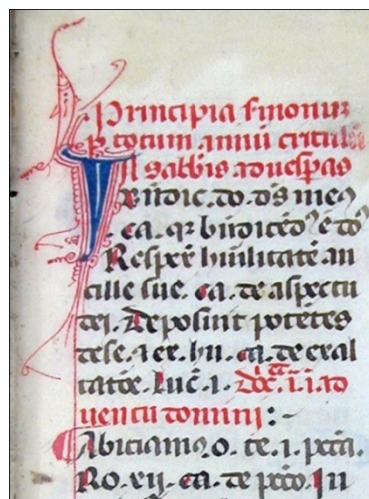 Principia sermonum
p totum anni circulū
In sabbīs aduesperas
Bn̄dic. do. ds̄ meꝰ
. ca. qꝛ bn̄dicēdꝰ ē
Respex̄ humilitatē an
cille sue. ca. de aspectu
dei. Deposuit potētes
de se. ⁊ ex. hu. ca. de exal
tatōe. Luc̄. i. Dōca. i. i. ad
uentu domini :-
Abiciamꝰ o. te. i. pctā.
Ro. xii. ca. de pctō. In